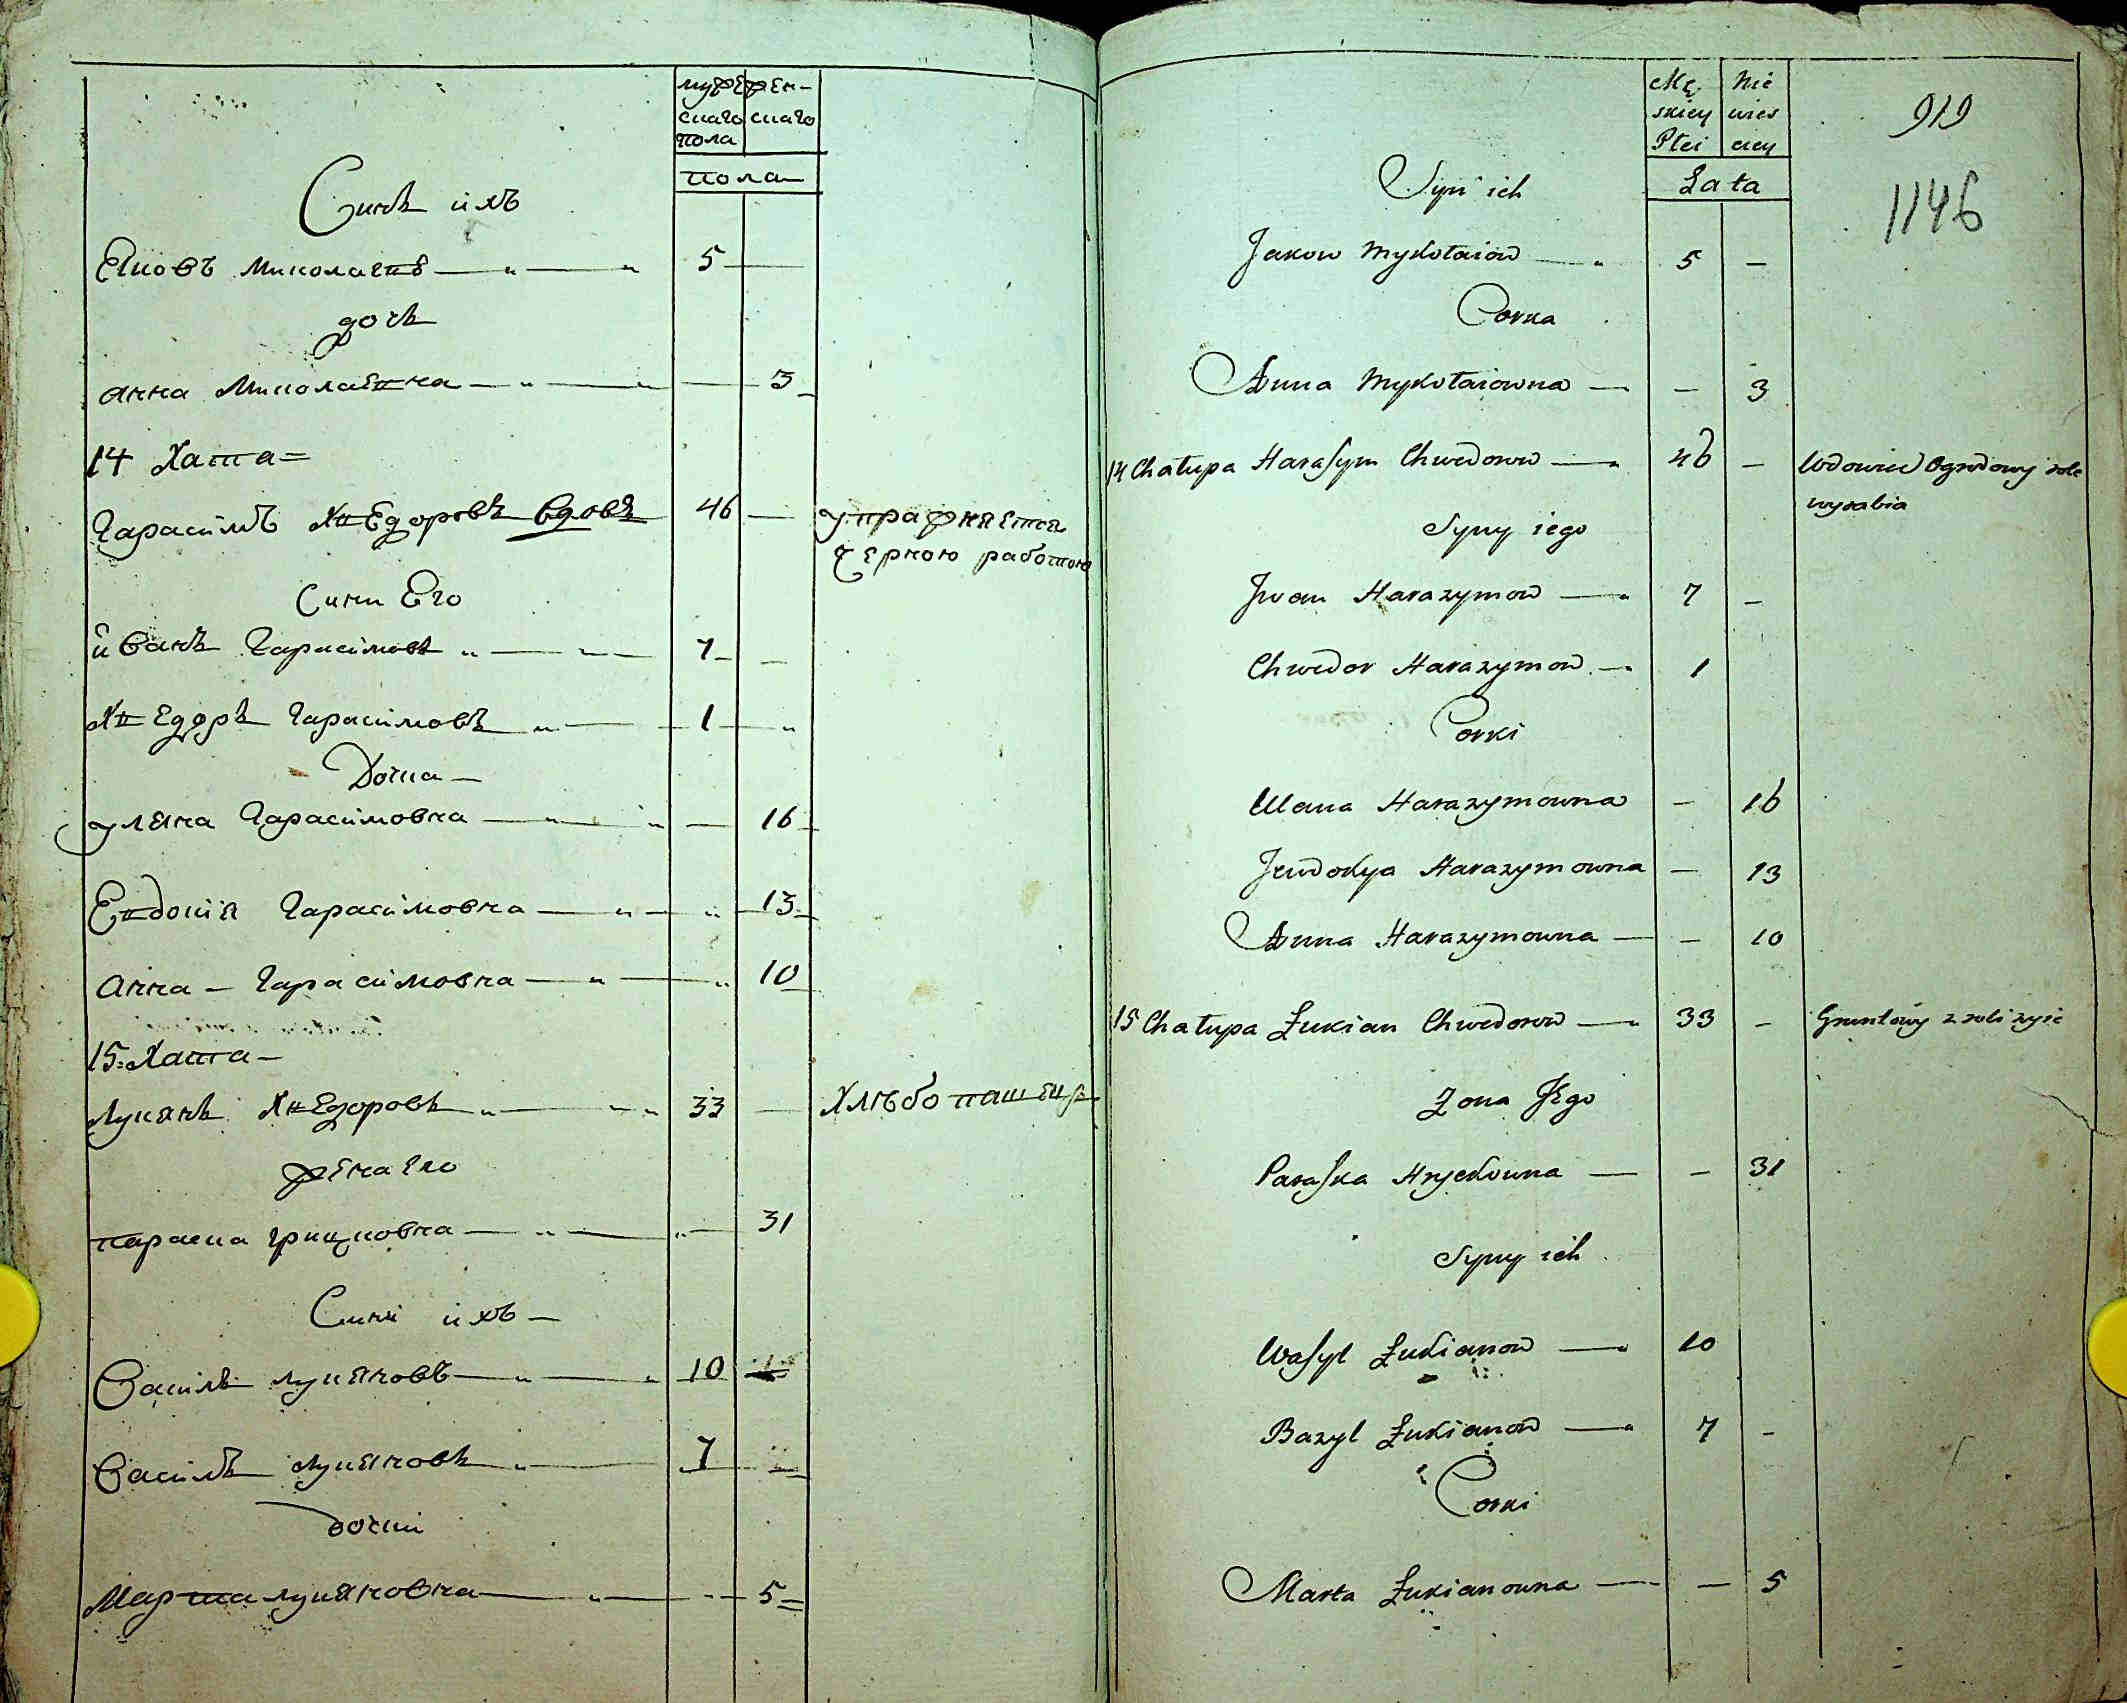 мужескаго пола
женскаго
пола
Синъ ихъ
Яковъ Миколаевъ — „ — „ 5 —
дочь
Анна Миколаевна — „ — „ — 3
14 Хата =
Гарасимъ Хведоровъ вдовъ 46 — упражняется
черною работою
Сини Его
иванъ Гарасимовъ „ — 7 —
Хведоръ Гарасимовъ „ — 1 „
Дочка —
уляна Гарасимовна — „ — „ — 16
Евдокия Гарасимовна — „ — „ 13
Анна — Гарасимовна — „ — „ 10
15: Хата —
Лукянъ Хведоровъ „ — „ 33 — Хлѣбопашецъ
жена Его
параска грицковна — „ — „ 31
Сини ихъ —
Василь лукяновъ — „ — „ 10 —
Василь лукяновъ „ — 7 —
дочки
Марта лукяновна — „ — 5
Męskiey Płci
Niewiesciey
Lata
919
1146
Syn ich
Jakow Mykołaiow — „ 5 —
Corka
Anna Mykołaiowna — — 3
14 Chałupa Harasym Chwedorow — „ 46 — Wdowiec Ogrodowy role
wyrabia
Syny iego
Jwan Harazymow — „ 7 —
Chwedor Harazymow — „ 1
Corki
Ulana Harazymowna — 16
Jewdokya Harazymowna — 13
Anna Harazymowna — — 10
15 Chałupa Łukian Chwedorow — „ 33 — Gruntowy z roli zyie
Zona Jego
Paraska Hryckowna — — 31
Syny ich
Wasyl Łukianow — „ 10
Bazyl Łukianow — „ 7 —
Corki
Marta Łukianowna — — 5